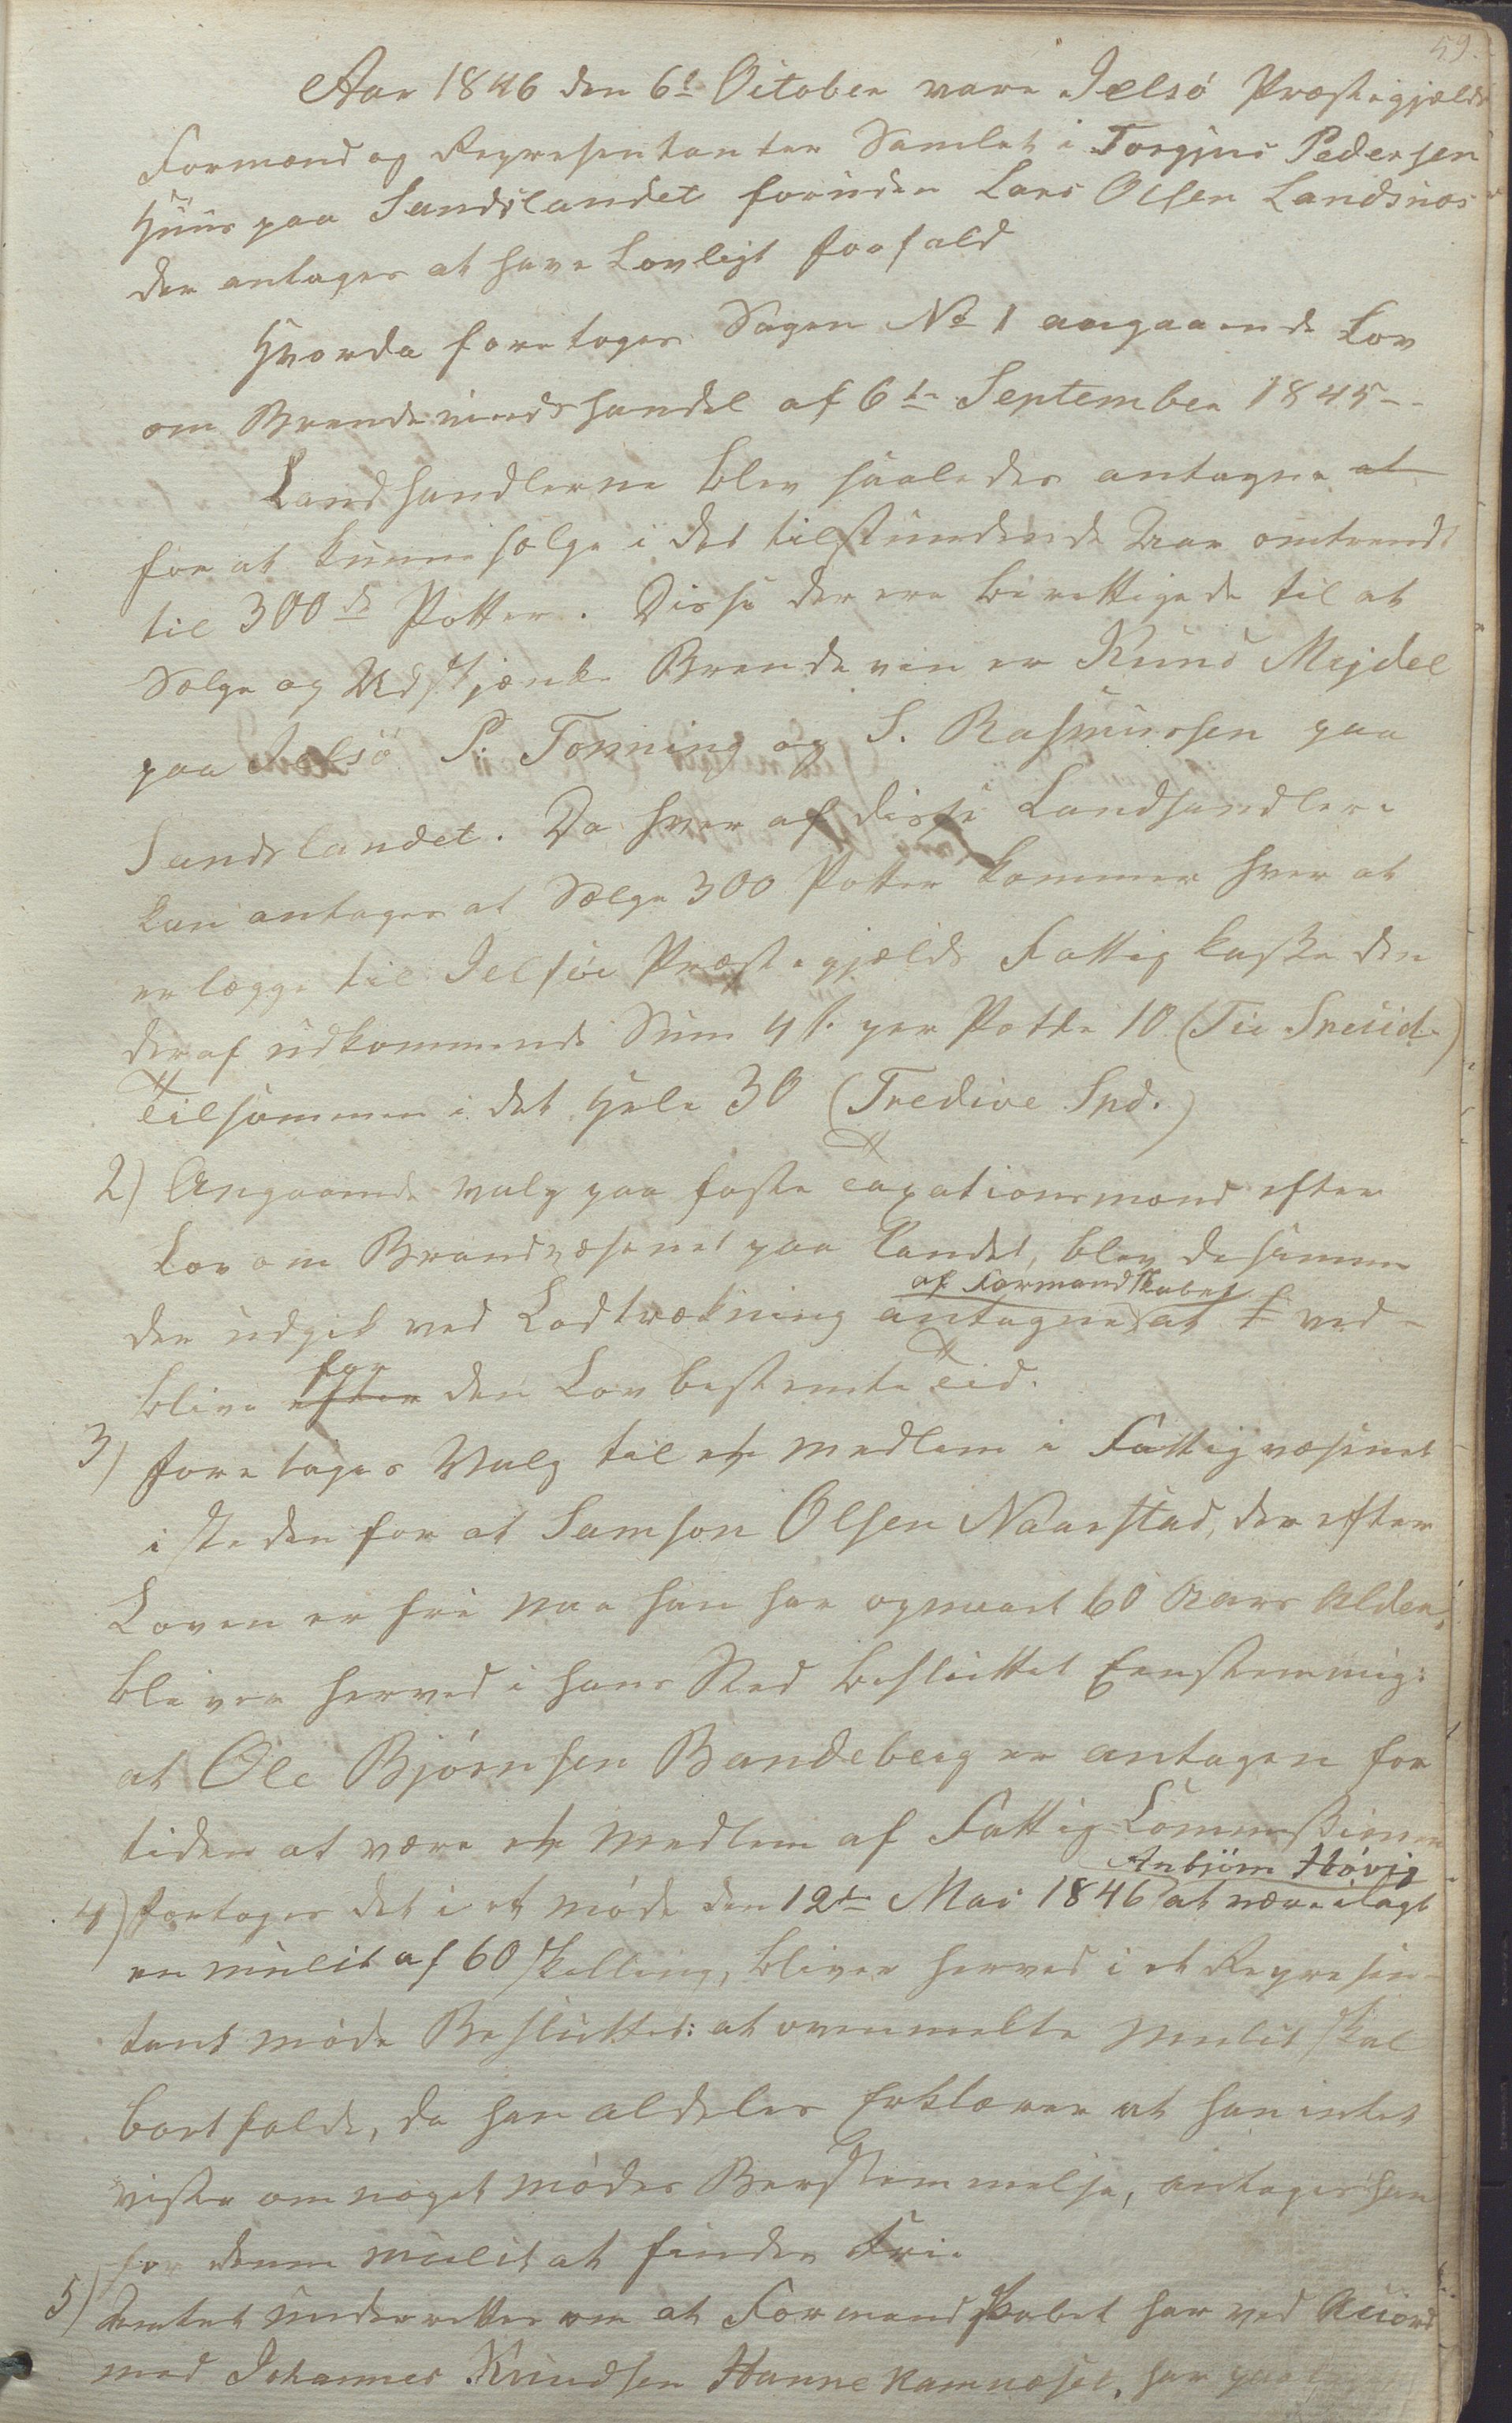 59.
Aar 1846 den 6t October vare Jelsö Præstegjælds
Formænd og Repræsentanter Samlet i Torgius Pedersen
Huus paa Sandslandet foruden Lars Olsen Landsnæs
der antages at have Lovligt forfald
Hvorda foretoges Sagen No 1 angaaende Lov
om Brændeviinds handel af 6te September 1845 --
Landhandlerne blev saaledes antagne at
for at kunne sælge i det tilstundende Aar omtrendt
til 300de Potter. Disse der ere berettigede til at
Sælge og Udskjænke Brændeviin er Knud Mejdel
paa Jelsö P: Tonning og S. Rasmussen paa
Sandslandet. Da hver af disse Landhandlere
kan antages at Sælge 300 Potter kommer hver at
erlægge til Jelsöe Præstegjælds Fattigkasse den
deraf udkommende Sum 4 s. per Potte 10 (Tie Speiid.)
Tilsammen i det Hele 30 (Tredive Spd.)
2) Angaaende valg paa faste Taxationsmænd efter
Lov om Brandvæsenet paa Landet, blev de samme
af Formandskabet
der udgik ved Lodtrækning antagne at f ved-
for
blive efter den Lovbestemte Tid.
3) foretages Valg til et medlem i Fattigvæsenet
i steden for at Samson Olsen Naarstad, der efter
Loven er fri naar han har opnaaet 60 Aars Alder,
bliver herved i hans Sted besluttet Eenstemmig:
at Ole Bjørnsen Bandeberg er antagen for
tiden at være et Medlem af Fattig Commissionen
Anbjörn Hövig
4) foretoges det i et möde den 12te Mai 1846 at være ilagt
en mulct af 60 skelling, bliver herved i et Repræsen-
tant möde Besluttet: at ovenmelte mulct skal
bortfalde, da han aldeles Erklærer at han intet
viste om noget mödes Berstemmelse, antages han
for denne mulct at findes Frie
5) Amtet underrettes om at Formandskabet har ved Accord
med Johannes Knudsen Hanne kamnæset, har paa